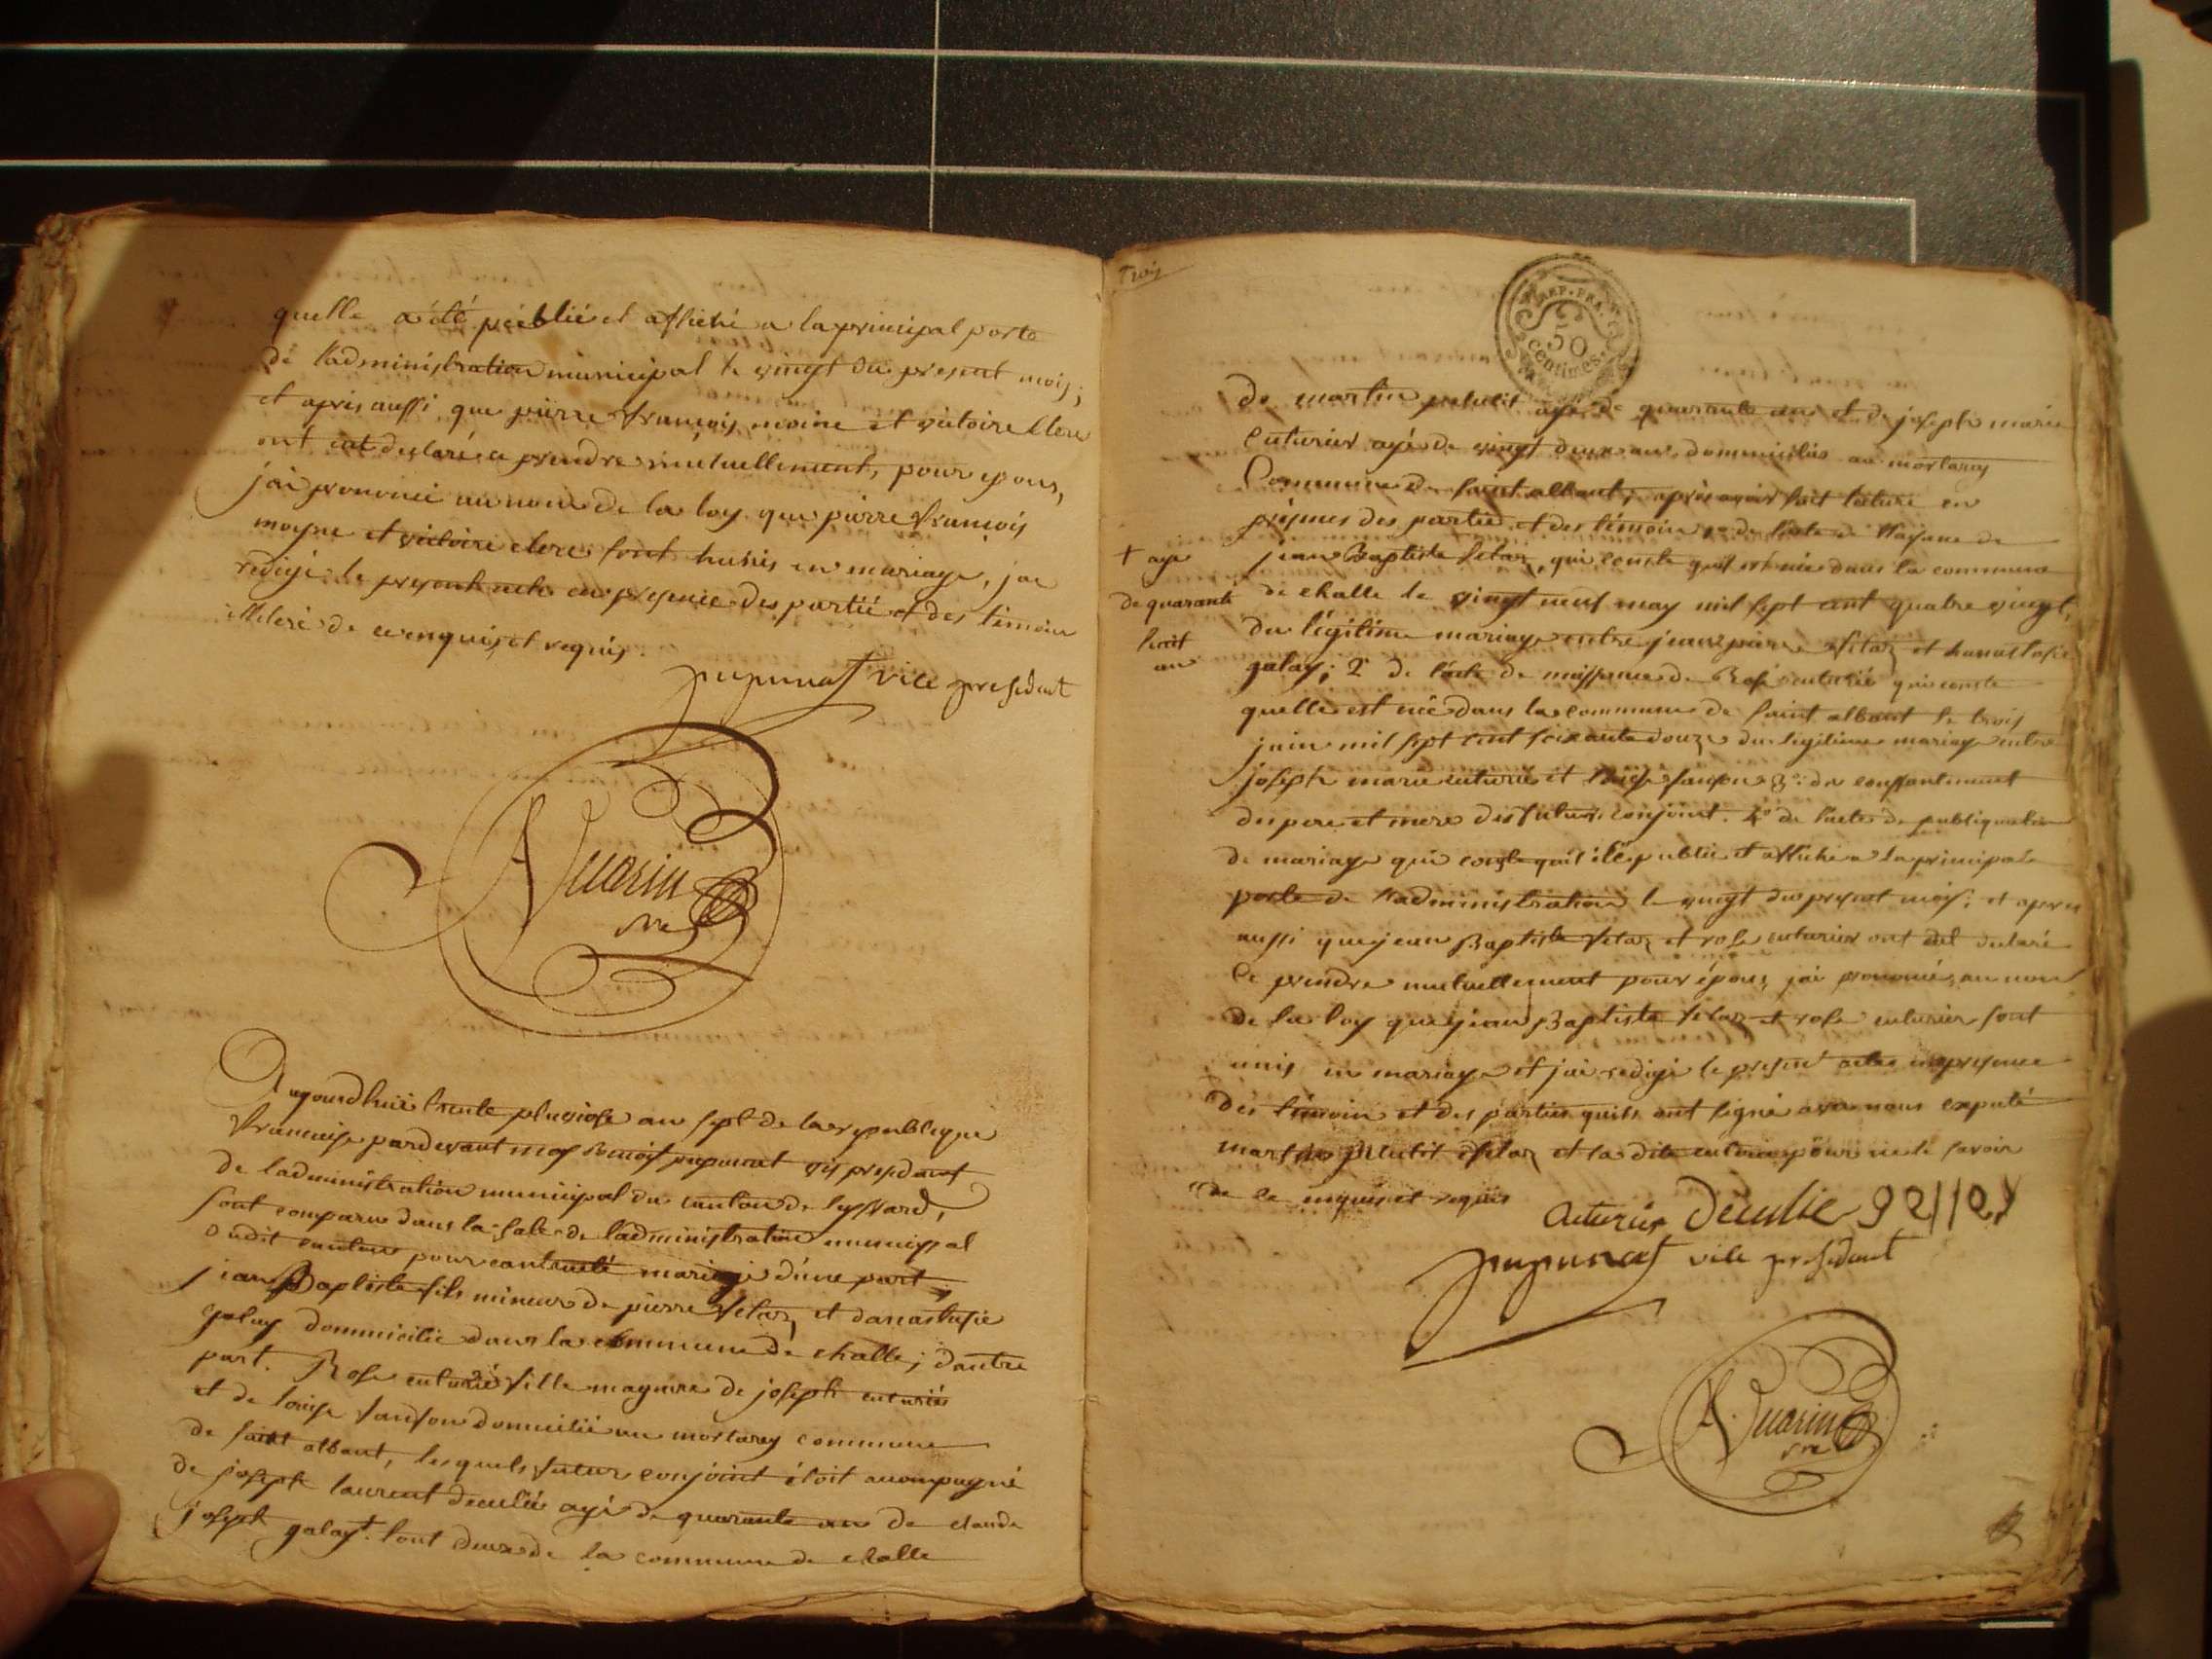 quelle a été péeblié et affiché a la principal porte
de l'administration municipal le vingt du present mois;
et apris aussi que piérre françois moine et victoire Clerc
ont eut declaré a prendre mutuellement, pour epous,
j'ai prononcé au nom de la loy que piérre françois
moyne et victoire clerc sont hunis en mariage, jai
redigé le present acte en presence des partié et des témoin
illeteré de ce enquis et requis.
pupunat vice president
A Quarin
sre
Aujourdhui trente pluviose an sept de la republique
francaise pardevant moy Benoit pupunat vis presidant
de ladministration municipal du canton de leyssard,
sont comparu dans la sale de l'administration municipal
dudit canton pour contracté mariage d'une part
jean Baptiste fils mineur de pierre felaz et danastasie
galay dommicilié dans la commune de challe; dautre
part. Rose cuturié fille mageure de joseph cuturié
et de louise sanson domicilié au mortarey commune
de saint albant, lesquels futur conjoint étoit acompagné
de joseph laurent deculié agé de quarante an de claude
joseph galay + tout deux de la commune de challe
Trois
REP. FRA.
50
centimes.
de martin petetit agé de quarante an et de joseph marie
cuturier agé de vingt deux an, dommicilié au mortarey
Commune de saint albant; après avoir fait lecture en
présence des partié et des témoin 1º de l'acte de naisance de
jean Baptiste felaz, qui conste quil est née dans la commune
de challe le vingt neuf may mil sept cent quatre vingt,
du légitime mariage entre jean piérre felaz et hanastasie
galay; 2º de l'acte de naissance de Rose cuturié qui conste
quelle est née dans la commune de saint albant le trois
juin mil sept cent soixante douze du legitime mariage entre
joseph marie cuturié et louise sanson 3º: du conssantement
des pere et mere des futur conjoint. 4º de l'acte de publiquation
de mariage qui conste quil été publié et affiché a la principale
porte de l'administration le vingt du present mois; et apres
aussi que jean Baptiste felaz et rose cuturier ont eut declaré
ce prendre mutuellement pour épous, jai prononcé, au nom
de la loy que jean Baptiste felaz et rose cuturier sont
unis en mariage et j'ai redigé le présent acte en presence
des témoin et des parties quils ont signé avec nous exepté
martin petetit felaz et la dite cuturier pour ne le savoir
de ce enquis et requis
+ age
de quarante
huit
an
cuturier Deculie galley
pupunat vice president
A. Quarin
sre